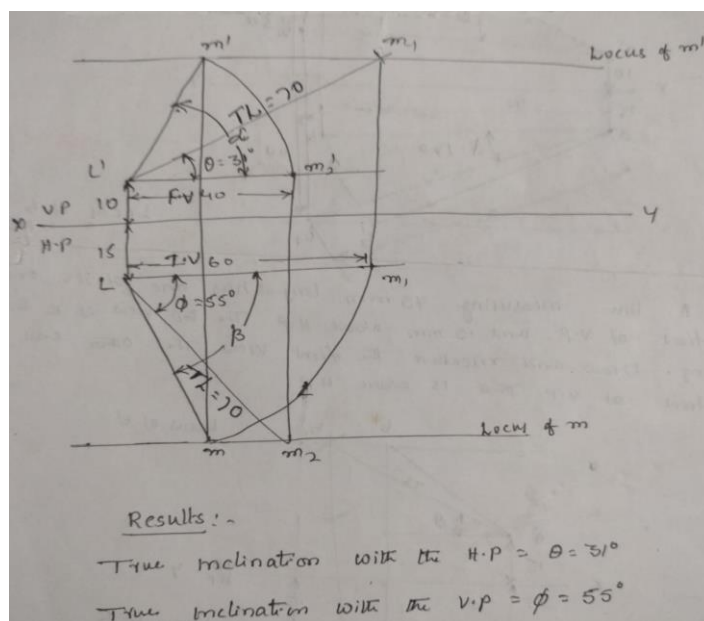 m' m₁' Locus of m'
TL = 70
α
θ = 31°
L' m₂'
VP 10 F.V 40
X Y
H.P 15 T.V 60
L m₁
φ = 55°
β
TL = 70
Locus of m
m m₂
Results :-
True Inclination with the H.P = θ = 31°
True Inclination with the V.P = φ = 55°